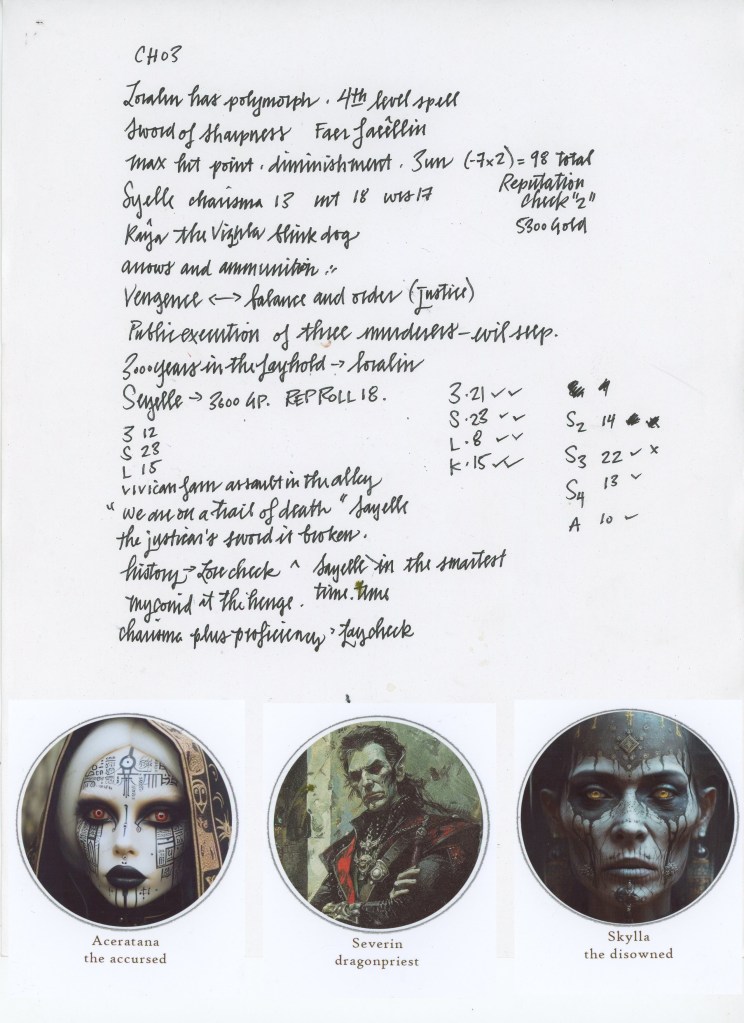 CH03
Loralin has polymorph. 4th level spell
Sword of sharpness Faer
max hit point. diminishment. 3un (-7x2) = 98 total
Reputation
check "2"
5300 Gold
Syelle charisma 13 int 18 wis 17
Raya the Vizsla blink dog
arrows and ammunition
Vengence <-> balance and order (Justice)
Public execution of three murderers - evil seep.
3000 years in the Layhold → loralin
Seyelle → 3600 GP. REP ROLL 18.
3 12
S 23
L 15
3.21 ✓✓
S.23 ✓✓
L.8 ✓✓
K.15 ✓✓
9
S2 14
S3 22 ✓ x
S4 13 ✓
A 10 ✓
assault in the alley
"we are on a trail of death" Sayelle
the justicar's sword is broken.
history → Lore check ^ Sayelle in the smartest
myconid at the henge. time. time
charisma plus proficiency > Laycheck
Aceratana
the accursed
Severin
dragonpriest
Skylla
the disowned